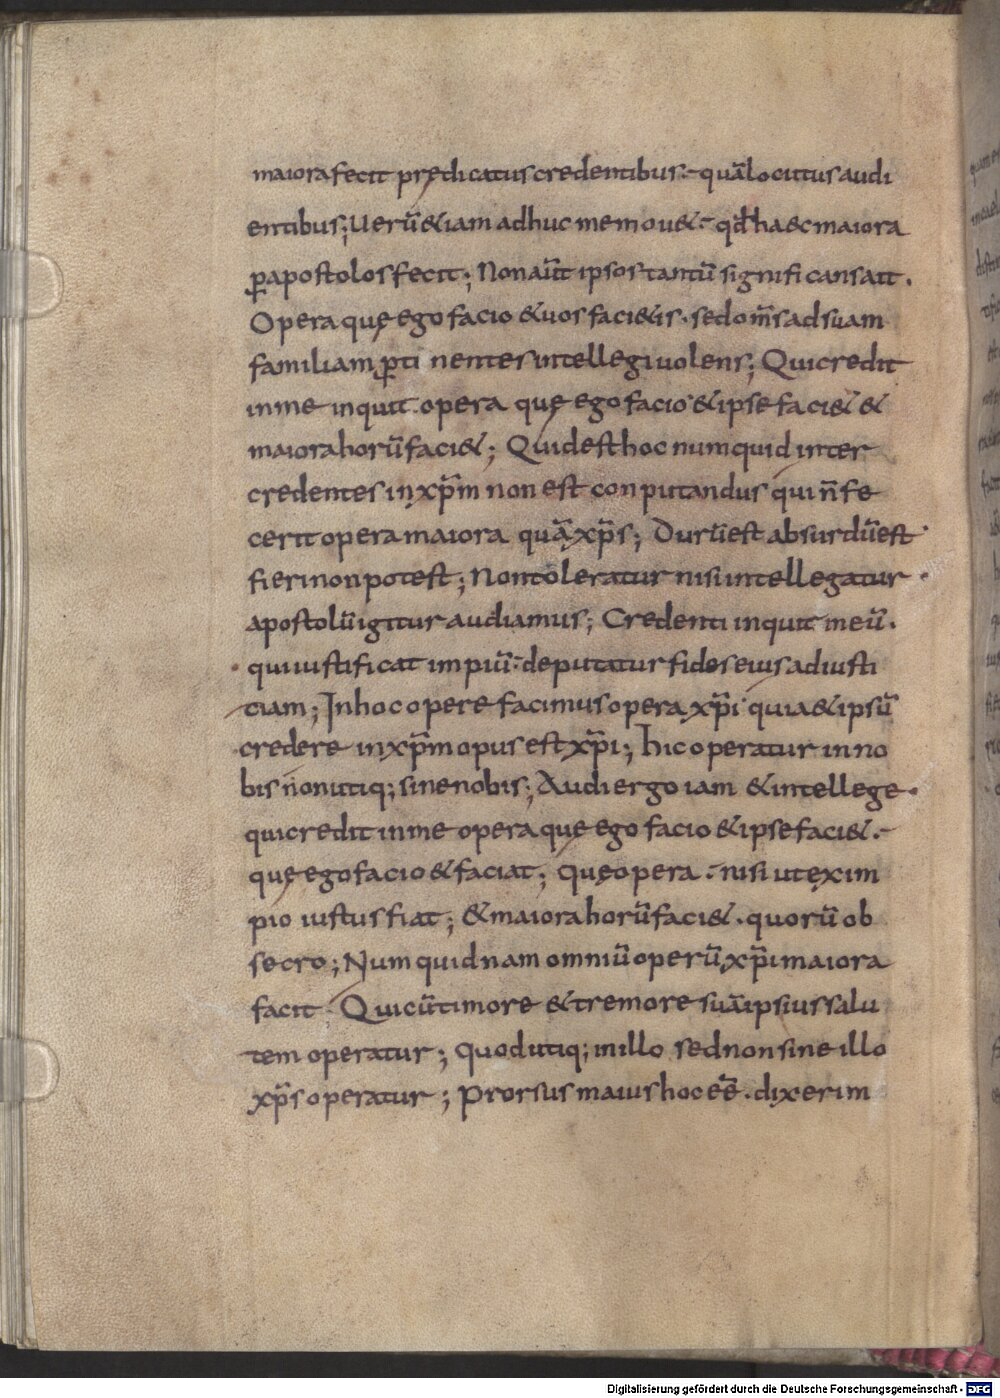 maiora fecit prędicatus credentibus· quā locutus audi
entibus; Uerū &iam adhuc me mou&· qđ haec maiora
ꝑ apostolos fecit; Non aūt ipsos tantū significans ait·
Opera quę ego facio & uos faci&is· sed om̄s ad suam
familiam ꝑtinentes intellegi uolens; Qui credit
in me inquit opera quę ego facio & ipse faci& &
maiora horū faci&; Quid est hoc numquid inter
credentes in xp̄m non est conputandus qui n̄ fe
cerit opera maiora quā xp̄s; Durū est absurdū est·
fieri non potest; Non toleratur nisi intellegatur·
apostolū igitur audiamus; Credenti inquit in eū·
qui iustificat impiū· deputatur fides eius ad iusti
tiam; In hoc opere facimus opera xp̄i quia & ipsū
credere in xp̄m opus est xp̄i; hic operatur in no
bis non utiq; sine nobis; Audi ergo iam & intellege·
qui credit in me opera quę ego facio & ipse faci&·
quę ego facio & faciat; quę opera· nisi ut ex im
pio iustus fiat; & maiora horū faci&· quorū ob
secro; Num quidnam omniū operū xp̄i maiora
facit Qui cū timore & tremore suā ipsius salu
tem operatur; Quod utiq; in illo sed non sine illo
xp̄s operatur; Prorsus maius hoc eē· dixerim
Digitalisierung gefördert durch die Deutsche Forschungsgemeinschaft - DFG